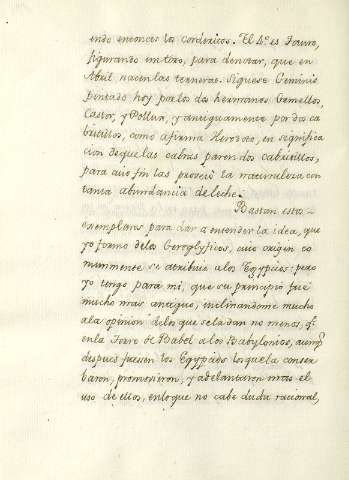 endo entonces los corderitos. El 2º es Tauro,
figurando un toro, para denotar, que en
Abril nacen las terneras. Siguese Geminis
pintado hoy por los dos hermanos Gemellos,
Castor, y Pollux, y antiguamente por dos ca
britillos, como afirma Herodoto, en significa
cion de que las cabras paren dos cabritillos,
para cuio fin las proveió la naturaleza con
tanta abundancia de leche.
Bastan estos
exemplares para dar a entender la idea, que
yo formo delos Geroglyficos, cuio origen co
munmente se atribuie alos Egypcios: pero
yo tengo para mi, que su principio fue
mucho mas antiguo, inclinandome mucho
ala opinion delos que seladan no menos, qe
enla Torre de Babel alos Babylonios, aunqe
despues fuesen los Egypcios los quela conser
baron, promovieron, y adelantaron mas el
uso de ellos, enloque no cabe duda racional,